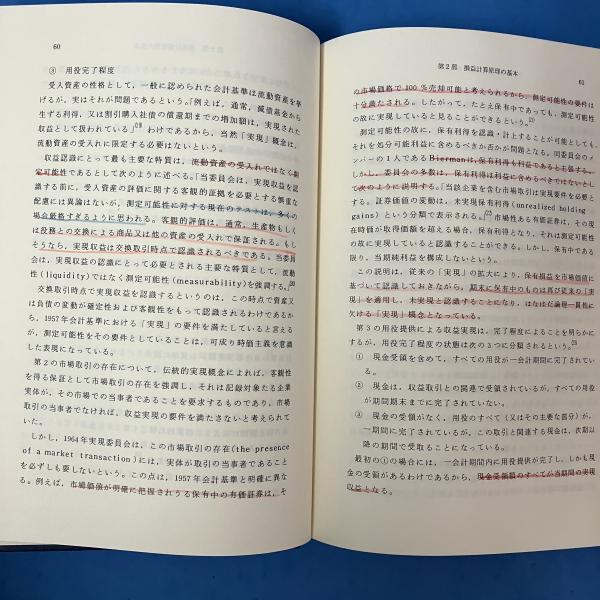 60
③ 用役完了程度
受入資産の性格として、一般に認められた会計基準は流動資産を挙
げるが、実はそれが問題であるという。「例えば、通常、減債基金から
生ずる利得、又は割引購入社債の償還期までの増加額は、実現された
収益として扱われている」わけであるから、当然「実現」概念は、
流動資産の受入れに限定する必要はないという。
収益認識にとって最も主要な特質は、流動資産の受入れではなく測
定可能性であるとして次のように述べる。「当委員会は、実現収益を認
識する前に、受入資産の評価に関する客観的証拠を必要とする慎重な
配慮には異論はないが、測定可能性に対する現在のテストは、多くの
場合厳格すぎるように思われる。客観的評価は、通常、生産物もしく
は役務との交換による商品又は他の資産の受入れで保証される。もし
そうなら、実現収益は交換取引時点で認識されるべきである。当委員
会は、実現収益の認識にとって必要とされる主要な特質として、流動
性(liquidity)ではなく測定可能性(measurability)を強調する。」
交換取引時点で実現収益を認識するというのは、この時点で資産又
は負債の変動が確定性および客観性をもって認識されるわけであるか
ら、1957年会計基準における「実現」の要件を満たしていると言える
が、測定可能性をその要件としていることは、可成り時価主義を意識
した表現になっている。
第2の市場取引の存在について、伝統的実現概念によれば、客観性
を得る保証として市場取引の存在を強調し、それは記録対象たる企業
が、その市場での当事者であることを要求するものであり、市場
取引の当事者でなければ、収益実現の要件を満たさないと考えられて
いた。
しかし、1964年実現委員会は、この市場取引の存在(the presence
of a market transaction)には、実体が取引の当事者であること
を必ずしも要しないという。この点は、1957年会計基準と明確に異な
る。例えば、市場価値が明確に把握されうる保有中の有価証券は、そ
第2部 損益計算原理の基本
61
の市場価格で100%売却可能と考えられるから、測定可能性の要件は
十分満たされる。したがって、たとえ保有中であっても、測定可能性
の故に実現していると見ることができるという。
測定可能性の故に、保有利得を認識・計上することが可能としても、
それを処分可能利益に含めるべきか否かが問題となる。同委員会のメ
ンバーの1人であるBiermanは、保有利得も利益であると主張する。
しかし、委員会の多数は、保有利得は利益に含めるべきではないとし
て次のように説明する。「当該企業を含む市場取引は実現要件に必要と
する。証券価値の変動は、未実現保有利得(unrealized holding
gains)という分類で表示される。」市場性ある有価証券は、その現
在時価が取得価額を超える場合、保有利得となり、それは測定可能性
の故に実現していると認識することができる。しかし、保有中である
限り、当期純利益を構成しないという。
この説明は、従来の「実現」の拡大により、保有損益を市場価値に
基づいて認識しておきながら、期末に保有中のものは再び従来の「実
現」を適用し、未実現と認識することになり、はなはだ論理一貫性に
欠ける「実現」概念となっている。
第3の用役提供による収益実現は、完了程度によることを明らかに
するが、用役完了程度の状態は次の3つに分類されるという。
① 現金受領を含めて、すべての用役が一会計期間に完了されてい
る。
② 現金は、収益取引との関連で受領されているが、すべての用役
が期間期末までに完了していない。
③ 現金の受領がなく、用役のすべて(又はその主要な部分)が、
一期間に完了されているが、この取引と関連する現金は、次期以
降の期間で受取ることになっている。
最初の①の場合には、一会計期間内に用役提供が完了し、しかも現
金の受領があるわけであるから、現金受領額のすべてが当期間の実現
収益となる。